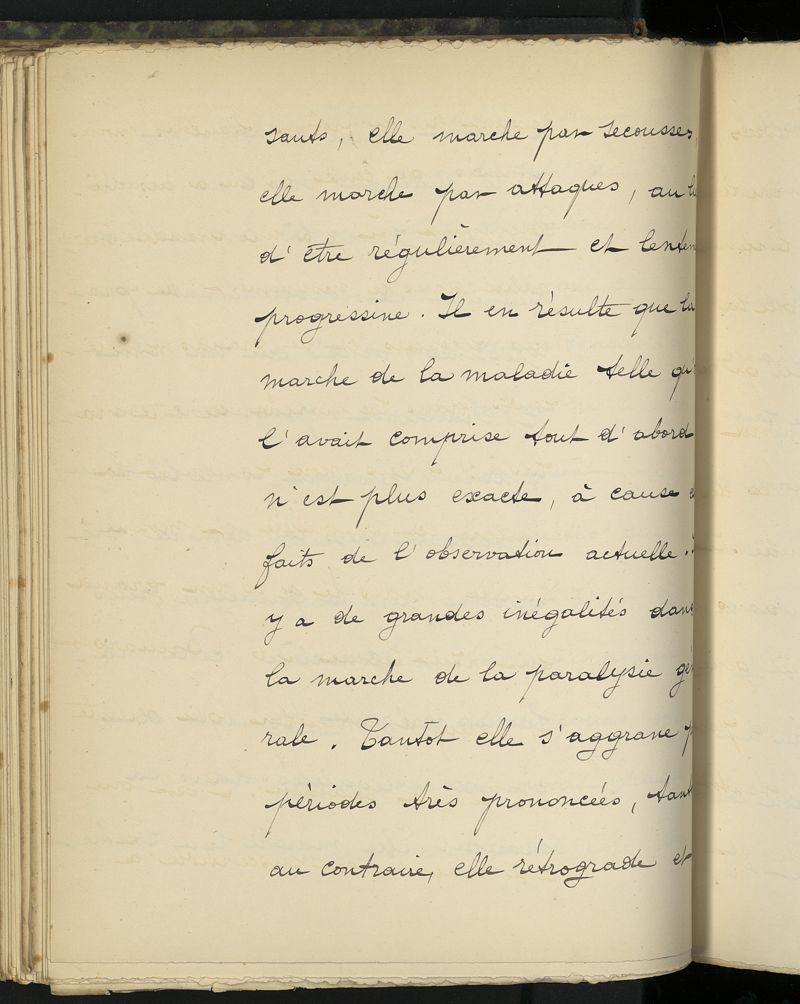 sauts, elle marche par secousses,
elle marche par attaques, au l
d'être régulièrement et lentem
progressive. Il en résulte que la
marche de la maladie telle qu'
l'avait comprise tout d'abord
n'est plus exacte, à cause
faits de l'observation actuelle.
y a de grandes inégalités dans
la marche de la paralysie gé
rale. Tantôt elle s'aggrave p
périodes très prononcées, tant
au contraire, elle rétrograde et